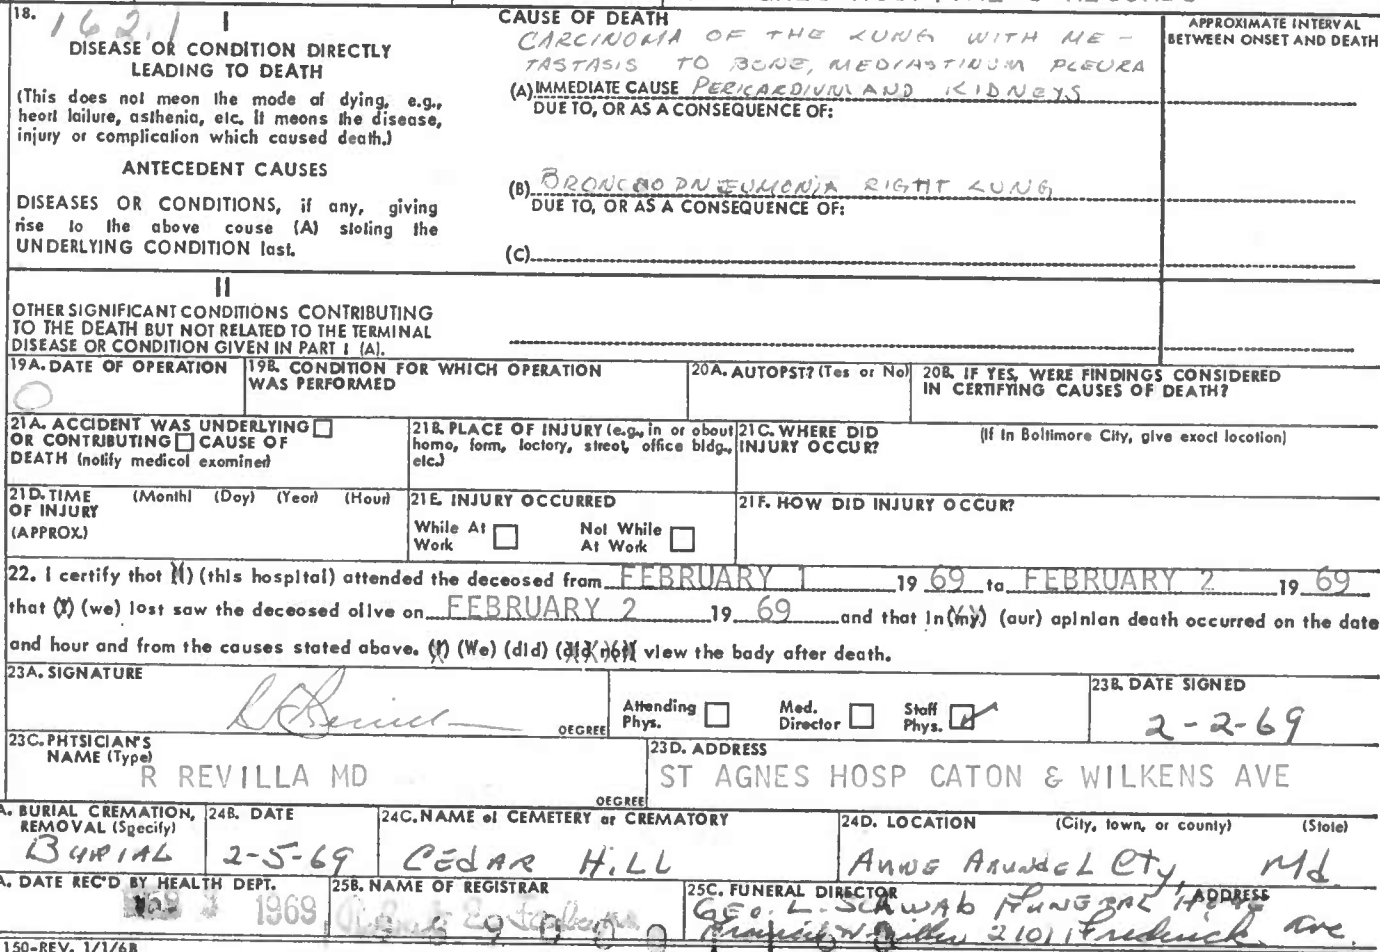 18. 162.1 I
DISEASE OR CONDITION DIRECTLY
LEADING TO DEATH
(This does not meon the mode of dying, e.g.,
heort failure, asthenia, etc. It meons the disease,
injury or complication which caused death.)
ANTECEDENT CAUSES
DISEASES OR CONDITIONS, if any, giving
rise to the above couse (A) stoting the
UNDERLYING CONDITION last.
CAUSE OF DEATH
CARCINOMA OF THE LUNG WITH ME-
TASTASIS TO BONE, MEDIASTINUM PLEURA
(A) IMMEDIATE CAUSE PERICARDIUM AND KIDNEYS
DUE TO, OR AS A CONSEQUENCE OF:
(B) BRONCHO PNEUMONIA RIGHT LUNG
DUE TO, OR AS A CONSEQUENCE OF:
(C)
APPROXIMATE INTERVAL
BETWEEN ONSET AND DEATH
II
OTHER SIGNIFICANT CONDITIONS CONTRIBUTING
TO THE DEATH BUT NOT RELATED TO THE TERMINAL
DISEASE OR CONDITION GIVEN IN PART I (A).
19A. DATE OF OPERATION
O
19B. CONDITION FOR WHICH OPERATION
WAS PERFORMED
20A. AUTOPSY? (Yes or No)
20B. IF YES, WERE FINDINGS CONSIDERED
IN CERTIFYING CAUSES OF DEATH?
21A. ACCIDENT WAS UNDERLYING
OR CONTRIBUTING CAUSE OF
DEATH (notify medicol examiner)
21B. PLACE OF INJURY (e.g., in or obout
homo, form, foctory, street, office bldg.,
etc.)
21C. WHERE DID
INJURY OCCUR?
(If In Boltimore City, give exoct locotion)
21D. TIME (Month) (Doy) (Yeor) (Hour)
OF INJURY
(APPROX.)
21E. INJURY OCCURRED
While At Work
Not While At Work
21F. HOW DID INJURY OCCUR?
22. I certify thot (I) (this hospital) attended the deceosed from FEBRUARY 1 19 69 to FEBRUARY 2 19 69
that (I) (we) lost saw the deceosed olive on FEBRUARY 2 19 69 and that in (my) (aur) apinian death occurred on the date
and hour and from the causes stated above. (I) (We) (did) (did not) view the bady after death.
23A. SIGNATURE
DEGREE
Attending Phys.
Med. Director
Staff Phys.
23B. DATE SIGNED
2-2-69
23C. PHYSICIAN'S
NAME (Type)
R REVILLA MD
DEGREE
23D. ADDRESS
ST AGNES HOSP CATON & WILKENS AVE
A. BURIAL CREMATION,
REMOVAL (Specify)
BURIAL
24B. DATE
2-5-69
24C. NAME of CEMETERY or CREMATORY
CEDAR HILL
24D. LOCATION (City, town, or county) (Stote)
ANNE ARUNDEL CTY, Md
A. DATE REC'D BY HEALTH DEPT.
1969
25B. NAME OF REGISTRAR
25C. FUNERAL DIRECTOR ADDRESS
GEO. L. SCHWAB FUNERAL HOME
2101 Frederick Ave.
150-REV. 1/1/68